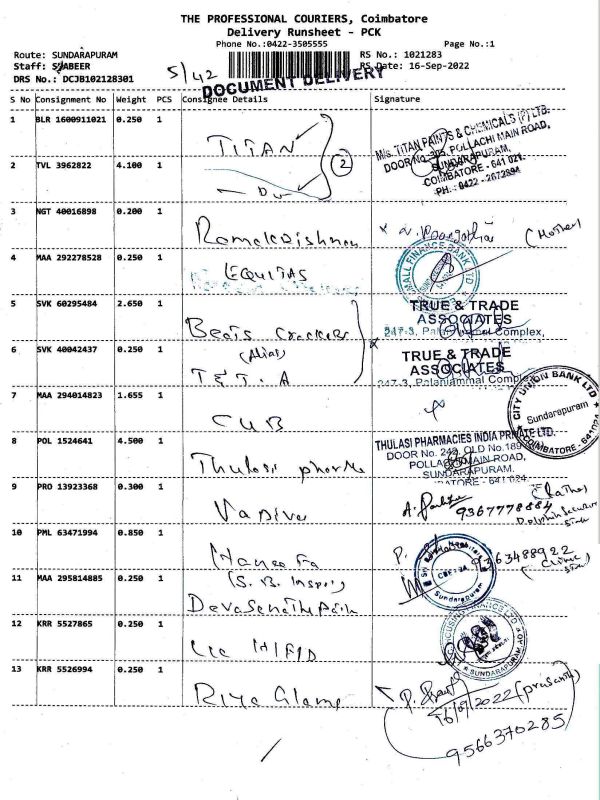 THE PROFESSIONAL COURIERS, Coimbatore
Delivery Runsheet - PCK
Phone No.:0422-3505555 Page No.:1
Route: SUNDARAPURAM RS No.: 1021283
Staff: SHABEER RS Date: 16-Sep-2022
DRS No.: DCJB102128301 5/42
DOCUMENT DELIVERY
S No Consignment No Weight PCS Consignee Details Signature
1 BLR 1600911021 0.250 1 TITAN
M/s. TITAN PAINTS & CHEMICALS (P) LTD.
DOOR No. 305, POLLACHI MAIN ROAD,
SUNDARAPURAM,
COIMBATORE - 641 021.
PH.: 0422 - 2672894
2 TVL 3962822 4.100 1 — Do — 2
3 NGT 40016898 0.200 1 Ramakrishnan (Mother)
4 MAA 292278528 0.250 1 EQUITAS
SMALL FINANCE BANK LTD
5 SVK 60295484 2.650 1 Beats Crackers
TRUE & TRADE
ASSOCIATES
247-3, Palaniammal Complex,
6 SVK 40042437 0.250 1 (Alias)
T & T. A
TRUE & TRADE
ASSOCIATES
247-3, Palaniammal Complex
7 MAA 294014823 1.655 1 CUB
CITY UNION BANK LTD
Sundarapuram
COIMBATORE
8 POL 1524641 4.500 1 Thulasi pharma
THULASI PHARMACIES INDIA PRIVATE LTD.
DOOR No. 249, OLD No.189
POLLACHI MAIN ROAD,
SUNDARAPURAM,
COIMBATORE - 641 024.
9 PRO 13923368 0.300 1 Vadivu
9367778884
10 PML 63471994 0.850 1
9363488922
(Clinic
Sundarapuram
11 MAA 295814885 0.250 1 Devasenathipathi
12 KRR 5527865 0.250 1 Lic HFL
HOUSING FINANCE LTD
SUNDARAPURAM
13 KRR 5526994 0.250 1 Riya
16/09/2022
9566370285